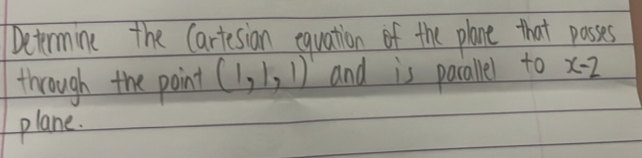 Determine the Cartesian equation of the plane that passes
through the point (1,1,1) and is parallel to x-z
plane.